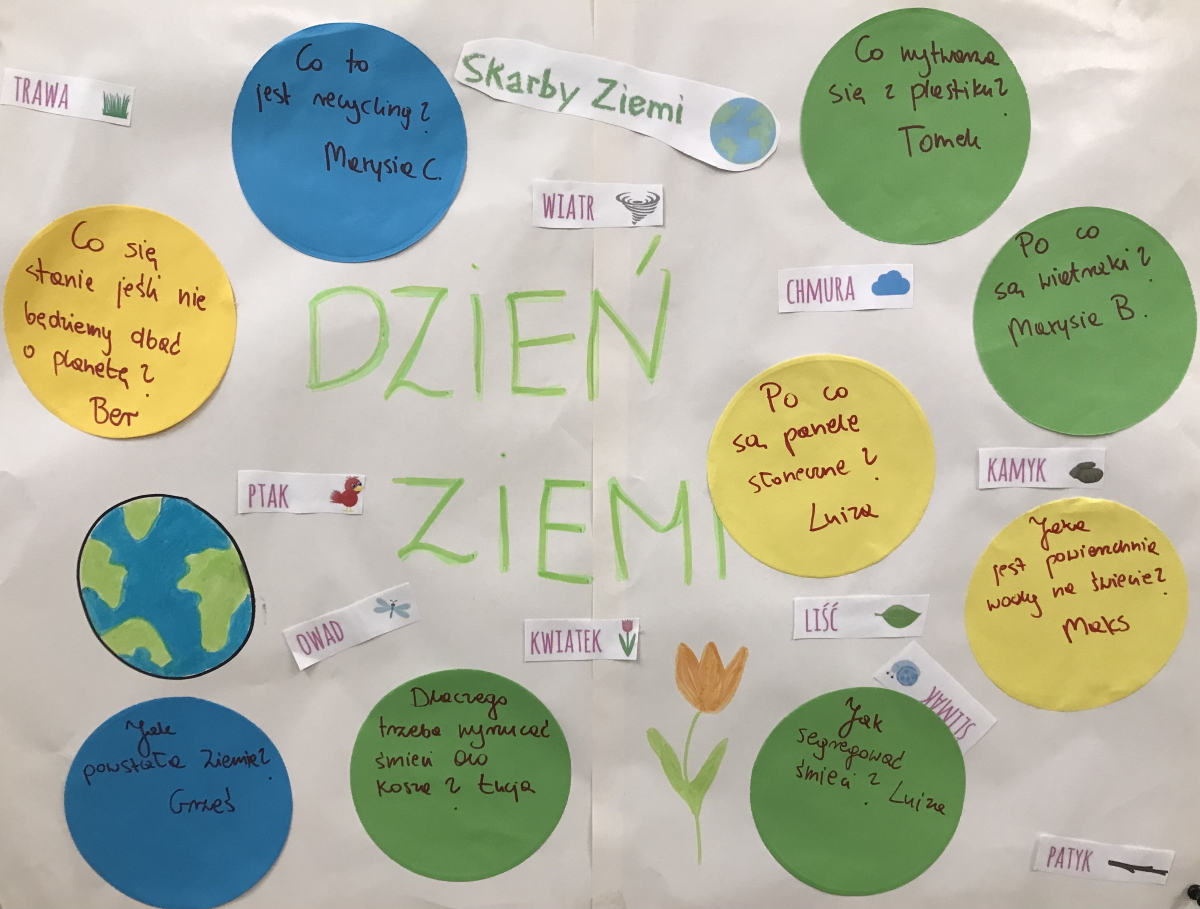 TRAWA
Co to
jest recycling?
Marysia C.
Skarby Ziemi
Co wytwarza
się z plastiku?
Tomek
WIATR
Co się
stanie jeśli nie
będziemy dbać
o planetę?
Ber
DZIEŃ
ZIEMI
CHMURA
Po co
są wiatraki?
Marysia B.
Po co
są panele
słoneczne?
Luiza
KAMYK
PTAK
Jaka
jest powierzchnia
wody na świecie?
Maks
OWAD
KWIATEK
LIŚĆ
ŚLIMAK
Jak
powstała Ziemia?
Grześ
Dlaczego
trzeba wyrzucać
śmieci do
kosza? Łucja
Jak
segregować
śmieci? Luiza
PATYK